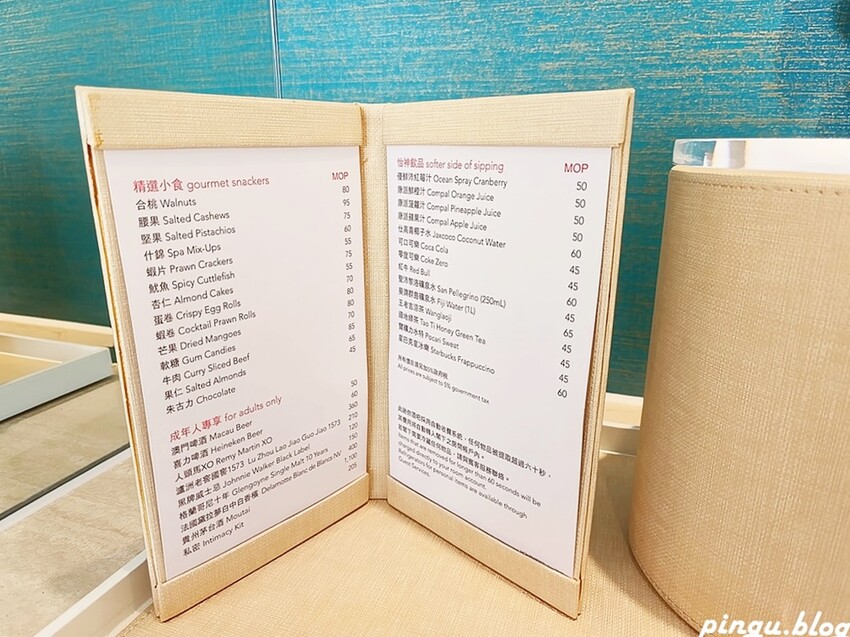 精選小食 gourmet snackers MOP
合桃 Walnuts 80
腰果 Salted Cashews 95
堅果 Salted Pistachios 75
什錦 Spa Mix-Ups 60
蝦片 Prawn Crackers 55
魷魚 Spicy Cuttlefish 75
杏仁 Almond Cakes 55
蛋卷 Crispy Egg Rolls 70
蝦卷 Cocktail Prawn Rolls 80
芒果 Dried Mangoes 80
軟糖 Gum Candies 70
牛肉 Curry Sliced Beef 85
果仁 Salted Almonds 65
朱古力 Chocolate 45
成年人專享 for adults only
澳門啤酒 Macau Beer 50
喜力啤酒 Heineken Beer 60
人頭馬XO Remy Martin XO 360
瀘洲老窖國窖1573 Lu Zhou Lao Jiao Guo Jiao 1573 210
黑牌威士忌 Johnnie Walker Black Label 120
格蘭哥尼十年 Glengoyne Single Malt 10 Years 150
法國黛拉夢白中白香檳 Delamotte Blanc de Blancs NV 400
貴州茅台酒 Moutai 1,100
私密 Intimacy Kit 205
怡神飲品 softer side of sipping MOP
優鮮沛紅莓汁 Ocean Spray Cranberry 50
康派鮮橙汁 Compal Orange Juice 50
康派菠蘿汁 Compal Pineapple Juice 50
康派蘋果汁 Compal Apple Juice 50
仕高高椰子水 Jaxcoco Coconut Water 60
可口可樂 Coca Cola 45
零度可樂 Coke Zero 45
紅牛 Red Bull 45
聖沛黎洛礦泉水 San Pellegrino (250mL) 60
斐濟群島礦泉水 Fiji Water (1L) 65
王老吉涼茶 Wanglaoji 45
道地綠茶 Tao Ti Honey Green Tea 45
寶礦力水特 Pocari Sweat 45
星巴克星冰樂 Starbucks Frappuccino 60
所有價目須另加5%政府稅
All prices are subject to 5% government tax
此迷你酒吧採用自動收費系統，任何物品被提取超過六十秒，
其費用將自動轉入閣下之房間帳戶內。
如閣下需要冷藏任何物品，請與賓客服務聯絡。
Items that are removed for longer than 60 seconds will be
charged directly to your room account.
Refrigerators for personal items are available through
Guest Services.
pingu.blog